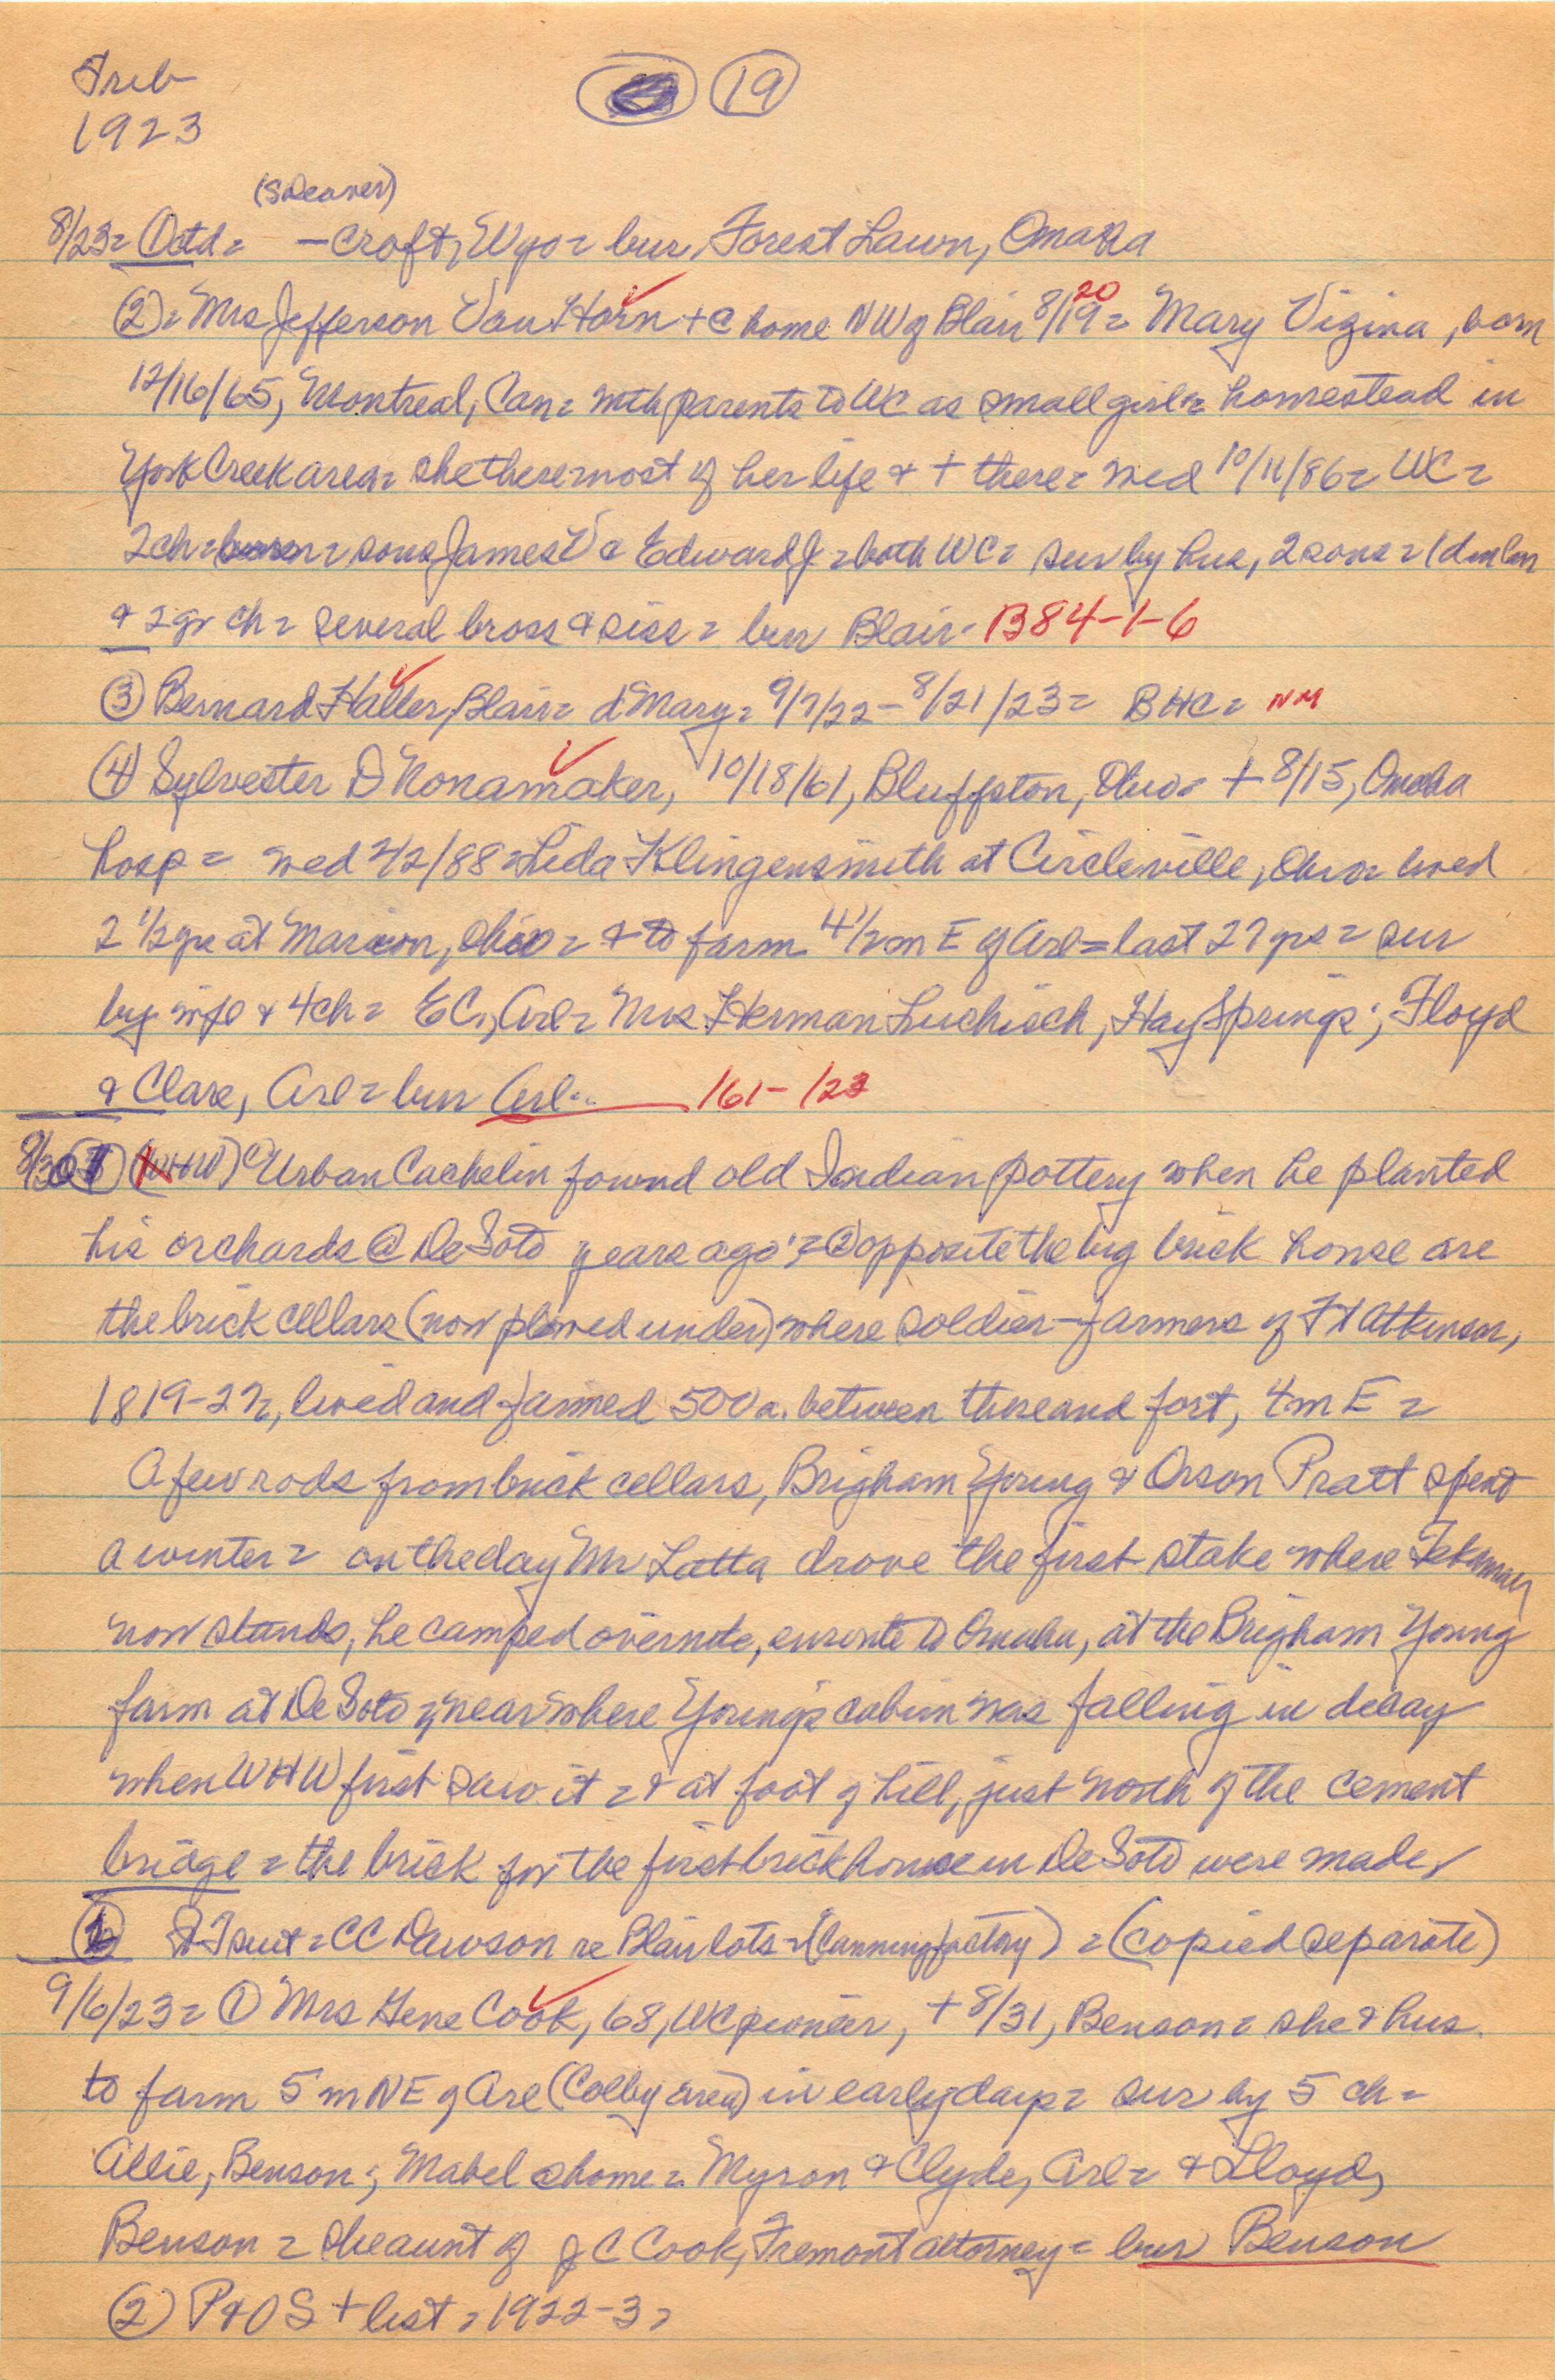 Trib
1923
19
(SDeaver)
8/23= Octd= —Croft, Wyo= bur, Forest Lawn, Omaha
(2)= Mrs Jefferson Van Horn + @ home NW of Blair 8/19= 20 Mary Vigina, born
12/16/65, Montreal, Can= with parents to WC as small girl= homestead in
York Creek area= she there most of her life & + there= wed 10/11/86= WC=
2ch= = sons James V & Edward J = both WC= sur by hus, 2 sons= 1 dinlaw
& 2 gr ch= several bross & siss= bur Blair- B84-1-6
(3) Bernard Haller, Blair= d Mary= 9/7/22-8/21/23= BHC= NM
(4) Sylvester D Nonamaker, 10/18/61, Bluffston, Ohio= + 8/15, Omaha
hosp= wed 2/2/88= Lida Klingensmith at Circleville, Ohio= lived
2 1/2 yrs at Marion, Ohio= & to farm 4 1/2 m E of Arl= last 27 yrs= sur
by wife & 4ch= EC, Arl= Mrs Herman Luchisch, Hay Springs; Floyd
& Clare, Arl= bur Arl.. 161-123
8/30 (1) (WHW) Urban Cachelin found old Indian pottery when he planted
his orchards @ DeSoto years ago;= opposite the big brick house are
the brick cellars (now plowed under) where soldier-farmers of Ft Atkinson,
1819-27, lived and farmed 500 a. between there and fort, 4m E=
A few rods from brick cellars, Brigham Young & Orson Pratt spent
a winter= on the day Mr Latta drove the first stake where Tekamay
now stands, he camped overnite, enroute to Omaha, at the Brigham Young
farm at DeSoto & near where Young's cabin was falling in decay
when WHW first saw it= & at foot of hill, just north of the cement
bridge= the brick for the first brick house in DeSoto were made
suit= CC Dawson re Blair lots= (Canning factory) = (copied separate)
9/6/23= (1) Mrs Gene Cook, 68, WC pioneer, + 8/31, Benson= she & hus.
to farm 5 m NE of Arl (Colby area) in early days= sur by 5 ch=
Allie, Benson; Mabel @ home= Myron & Clyde, Arl= & Lloyd,
Benson= she aunt of J C Cook, Fremont attorney= bur Benson
(2) P & O S + list= 1922-3=